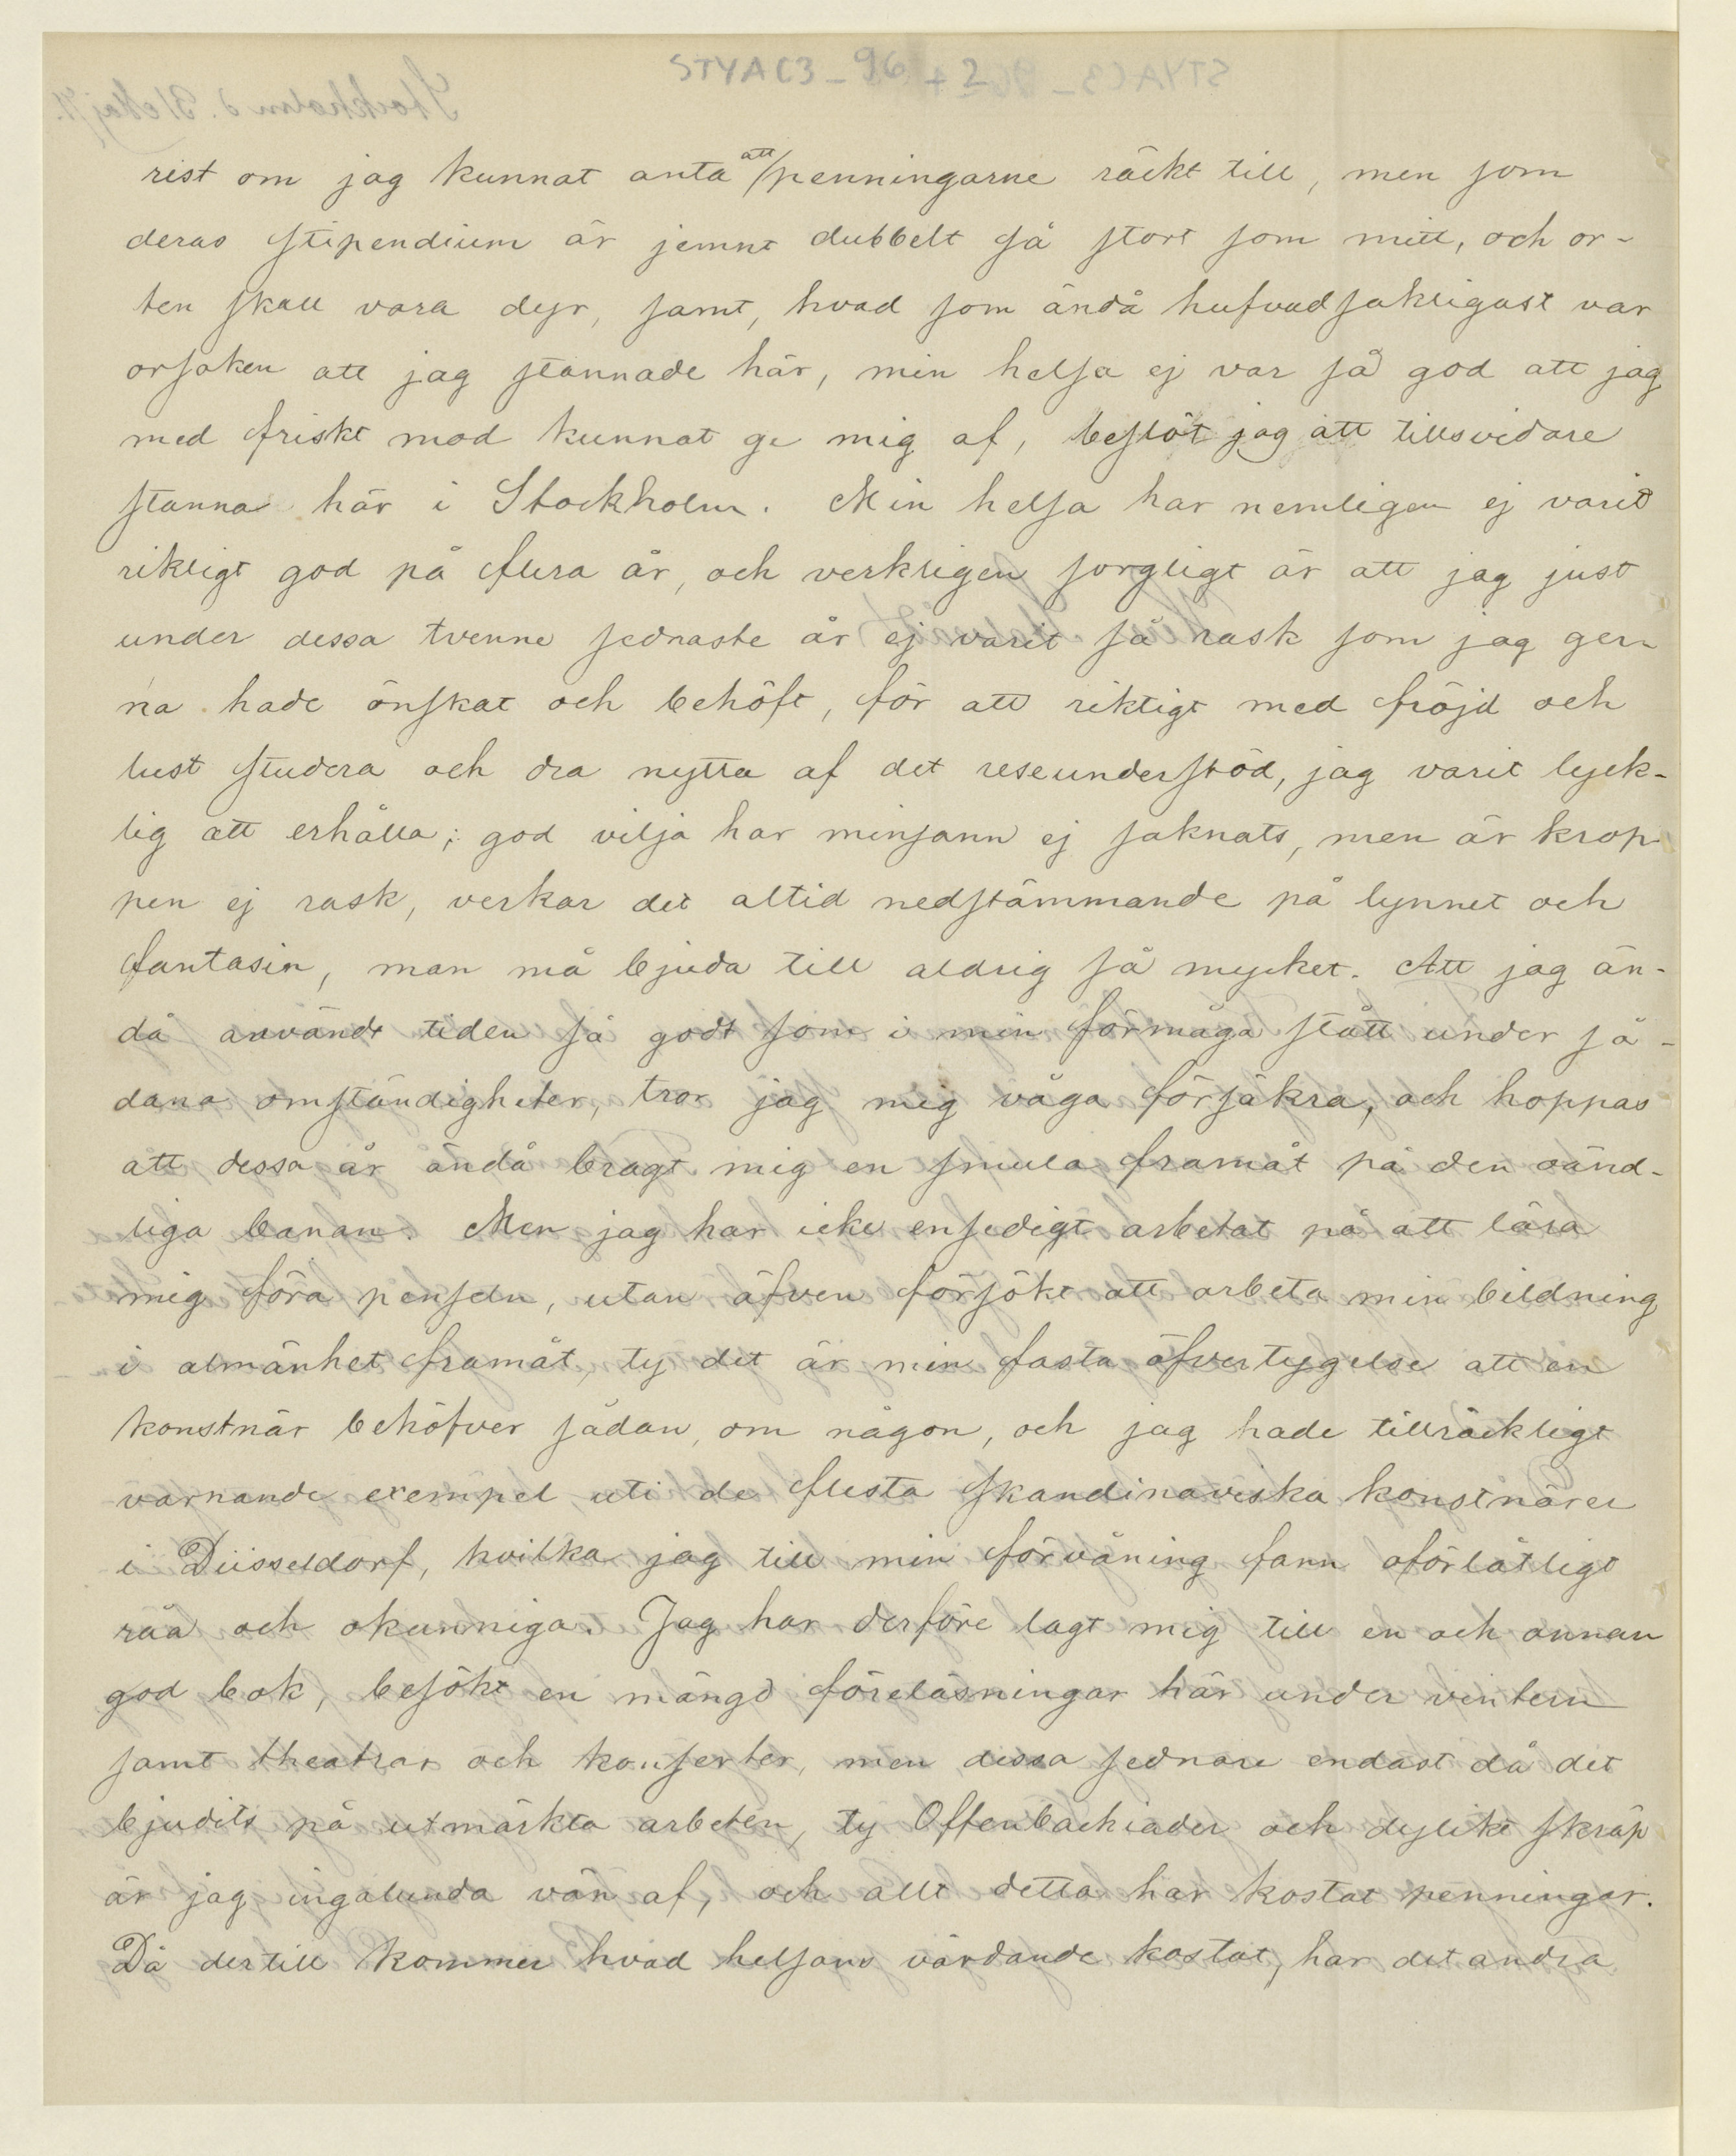 STYAC3_96 + 2
rest om jag kunnat anta att penningarne räckt till, men som
deras stipendium är jemnt dubbelt så stort som mitt, och or-
ten skall vara dyr, samt, hvad som ändå hufvudsakligast var
orsaken att jag stannade här, min helsa ej var så god att jag
med friskt mod kunnat ge mig af, beslöt jag att tillsvidare
stanna här i Stockholm. Min helsa har nemligen ej varit
riktigt god på flera år, och verkligen sorgligt är att jag just
under dessa tvenne sednaste år ej varit så rask som jag ger-
na hade önskat och behöft, för att riktigt med fröjd och
lust studera och dra nytta af det reseunderstöd, jag varit lyck-
lig att erhålla; god vilja har minsann ej saknats, men är krop-
pen ej rask, verkar det altid nedstämmande på lynnet och
fantasin, man må bjuda till aldrig så mycket. Att jag än-
då användt tiden så godt som i min förmåga stått under så-
dana omständigheter, tror jag mig våga försäkra, och hoppas
att dessa år ändå bragt mig en smula framåt på den oänd-
liga banan. Men jag har icke ensidigt arbetat på att lära
mig föra penseln, utan äfven försökt att arbeta min bildning
i almänhet framåt, ty det är min fasta öfvertygelse att en
konstnär behöfver sådan, om någon, och jag hade tillräckligt
varnande exempel uti de flesta skandinaviska konstnärer
i Düsseldorf, hvilka jag till min förvåning fann oförlåtligt
råa och okunniga. Jag har derföre lagt mig till en och annan
god bok, besökt en mängd föreläsningar här under vintern
samt theatrar och konserter, men dessa sednare endast då det
bjudits på utmärkta arbeten, ty Offenbachiader och dylikt skräp
är jag ingalunda vän af, och allt detta har kostat penningar.
Då dertill kommer hvad helsans vårdande kostat, har det andra